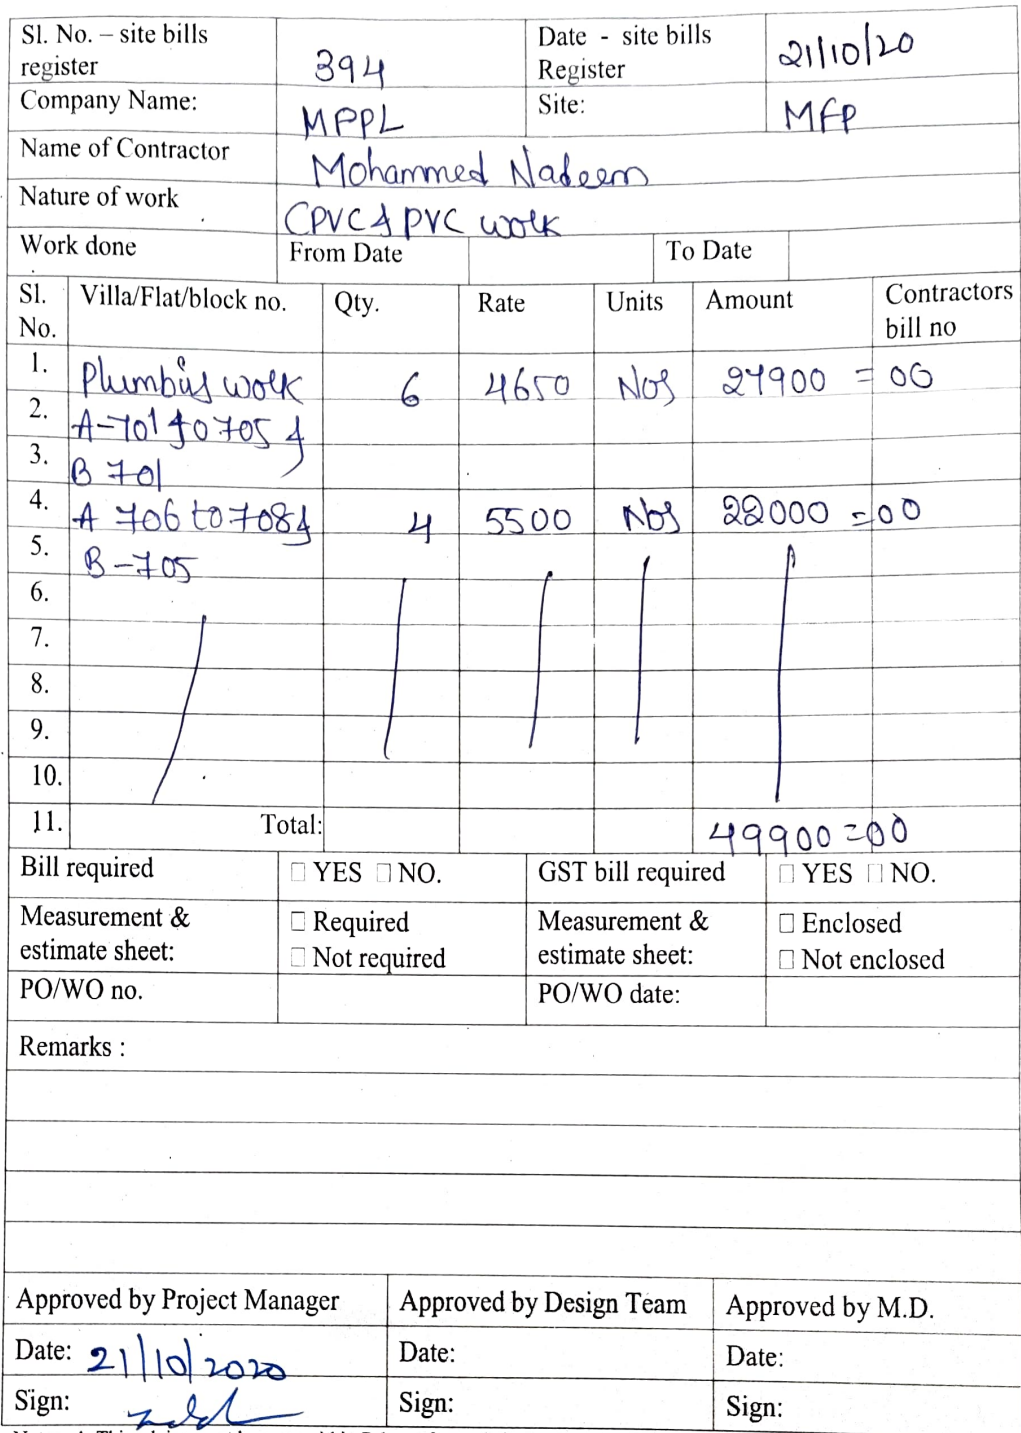 Sl. No. – site bills register 394 Date - site bills Register 21/10/20
Company Name: MPPL Site: MFP
Name of Contractor Mohammed Nadeem
Nature of work CPVC & PVC work
Work done From Date To Date
Sl. No. Villa/Flat/block no. Qty. Rate Units Amount Contractors bill no
1. Plumbing work 6 4650 Nos 27900 = 00
2. A-701 to 705 &
3. B 701
4. A 706 to 708 & 4 5500 Nos 22000 = 00
5. B-705
6.
7.
8.
9.
10.
11. Total: 49900 = 00
Bill required □ YES □ NO. GST bill required □ YES □ NO.
Measurement & estimate sheet: □ Required □ Not required Measurement & estimate sheet: □ Enclosed □ Not enclosed
PO/WO no. PO/WO date:
Remarks :
Approved by Project Manager Approved by Design Team Approved by M.D.
Date: 21/10/2020 Date: Date:
Sign: Sign: Sign: